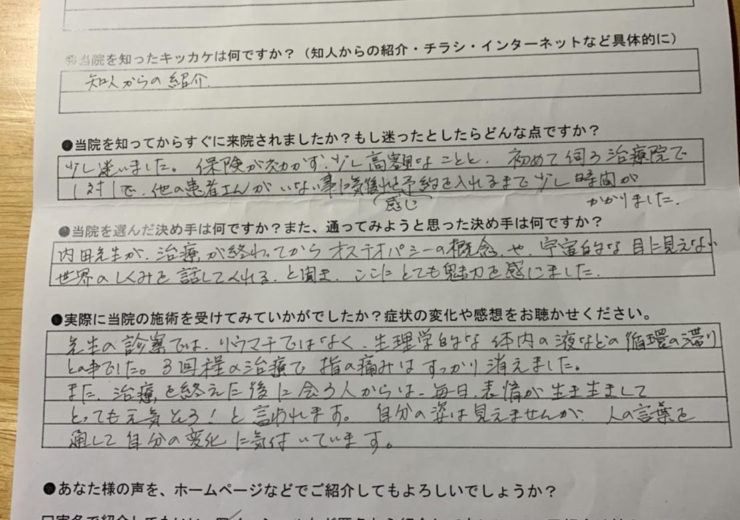 ●当院を知ったキッカケは何ですか？（知人からの紹介・チラシ・インターネットなど具体的に）
知人からの紹介.
●当院を知ってからすぐに来院されましたか？もし迷ったとしたらどんな点ですか？
少し迷いました。保険が効かず、少し高額なことと、初めて伺う治療院で
1対1で、他の患者さんがいない事に気後れを予約を入れるまで少し時間が
感じ
かかりました.
●当院を選んだ決め手は何ですか？また、通ってみようと思った決め手は何ですか？
内田先生が、治療が終わってからオステオパシーの概念や、宇宙的な目に見えない
世界のしくみを話してくれる、と聞き、ここにとても魅力を感じました.
●実際に当院の施術を受けてみていかがでしたか？症状の変化や感想をお聴かせください。
先生の診察では、リウマチではなく、生理学的な体内の液などの循環の滞り
との事でした。3回程の治療で指の痛みはすっかり消えました。
また、治療を終えた後に会う人からは、毎日、表情が生き生きして
とっても元気そう！と言われます。自分の姿は見えませんが、人の言葉を
通して自分の変化に気付いています。
●あなた様の声を、ホームページなどでご紹介してもよろしいでしょうか？